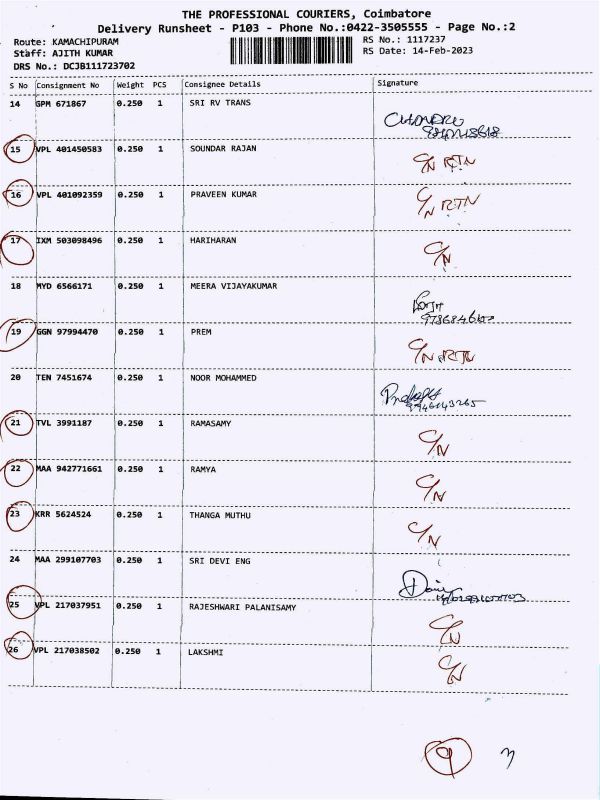 THE PROFESSIONAL COURIERS, Coimbatore
Delivery Runsheet - P103 - Phone No.:0422-3505555 - Page No.:2
Route: KAMACHIPURAM RS No.: 1117237
Staff: AJITH KUMAR RS Date: 14-Feb-2023
DRS No.: DCJB111723702
S No Consignment No Weight PCS Consignee Details Signature
14 GPM 671867 0.250 1 SRI RV TRANS
CHANDRU
15 VPL 401450583 0.250 1 SOUNDAR RAJAN
C/N RTN
16 VPL 401092359 0.250 1 PRAVEEN KUMAR
C/N RTN
17 IXM 503098496 0.250 1 HARIHARAN
C/N
18 MYD 6566171 0.250 1 MEERA VIJAYAKUMAR
19 GGN 97994470 0.250 1 PREM
C/N RTN
20 TEN 7451674 0.250 1 NOOR MOHAMMED
21 TVL 3991187 0.250 1 RAMASAMY
C/N
22 MAA 942771661 0.250 1 RAMYA
C/N
23 KRR 5624524 0.250 1 THANGA MUTHU
C/N
24 MAA 299107703 0.250 1 SRI DEVI ENG
25 VPL 217037951 0.250 1 RAJESHWARI PALANISAMY
C/N
26 VPL 217038502 0.250 1 LAKSHMI
C/N
9